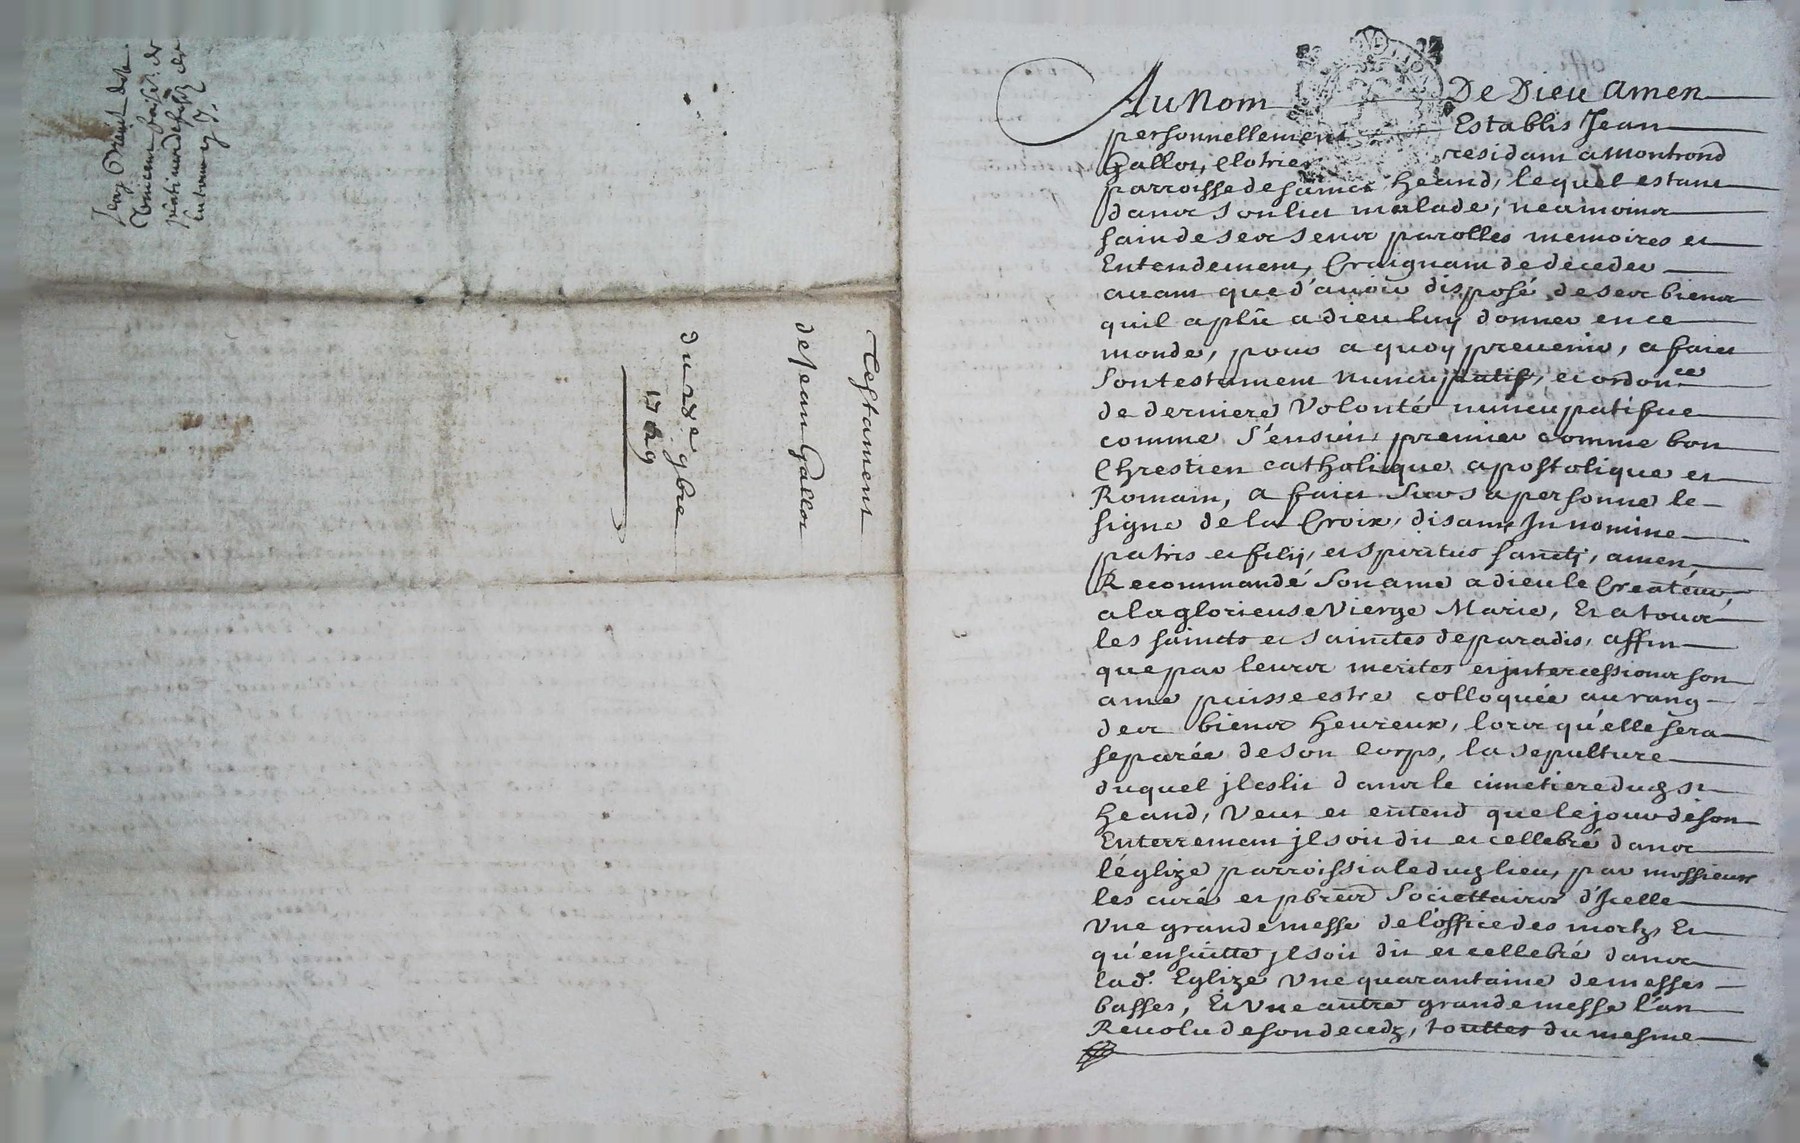 Testament
de Jean Gallot
du 28e 9bre
1729
Au Nom De Dieu Amen
personnellement Establis Jean
Gallot, Clotrier residant a montrond
parroisse de sainct heand, lequel estant
dans son lict malade, neamoins
sain de ses sens parolles memoires et
Entendement, Craignant de deceder
auant que d'auoir disposé de ses biens
quil a plu a dieu luy donner en ce
monde, pour a quoy preuenir, a faict
son testament nuncupatif, et ordonce
de derniere Volonté nuncupatifue
comme s'ensuit, premier comme bon
Chrestien catholique apostolique et
Romain, a faict sur sa personne le
signe de la Croix, disant In nomine
patris et filij, et spiritus sancti, amen,
Recommandé son ame a dieu le Createur,
a la glorieuse Vierge Marie, Et a tous
les saincts et sainctes de paradis, affin
que par leurs merites et jntercessions son
ame puisse estre colloquée au rang
des biens heureux, lors qu'elle sera
separée de son Corps, la sepulture
duquel jl eslit dans le cimetiere dudt St
heand, Veut et entend que le jour de son
Enterrement jl soit dit et cellebré dans
l'églize parroissiale dudt lieu, par messieurs
les curés et pbres Societtaires d'Icelle
Vne grande messe de l'office des morts, Et
qu'ensuitte jl soit dit et cellebré dans
lad. Eglize Vne quarantaine de messes
basses, Et Vne autre grande messe l'an
Reuolu de son decedz, touttes du mesme